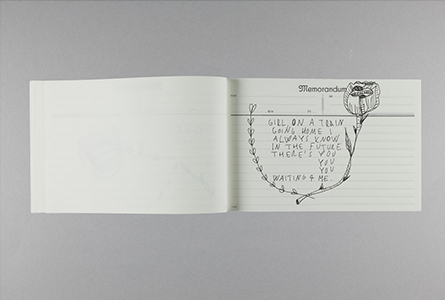 Memorandum
GIRL ON A TRAIN
GOING HOME I
ALWAYS KNOW
IN THE FUTURE
THERE'S YOU
YOU
YOU
WAITING 4 ME.